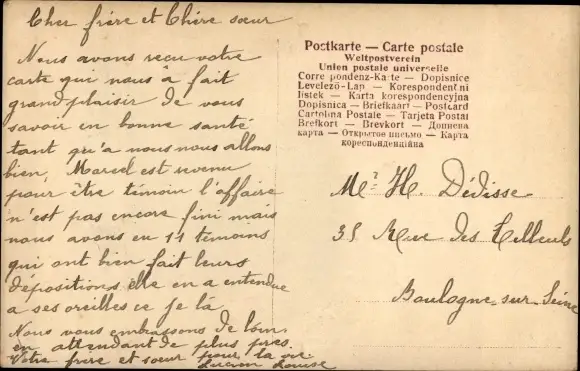 Cher frère et Chère sœur
Nous avons reçu votre
carte qui nous à fait
grand plaisir de vous
savoir en bonne santé
tant qu'a nous nous allons
bien, Marcel est revenu
pour être témoin l'affaire
n'est pas encore fini mais
nous avons eu 14 témoins
qui ont bien fait leurs
dépositions elle en a entendue
a ses oreilles ce je là
Nous vous embrassons de loin
en attendant de plus près
Votre frère et soeur pour la vie
Lucien Louise
Postkarte — Carte postale
Weltpostverein
Union postale universelle
Correspondenz-Karte — Dopisnice
Levelező-Lap — Korespondentní
lístek — Karta korespondencyjna
Dopisnica — Briefkaart — Postcard
Cartolina Postale — Tarjeta Postal
Brefkort — Brevkort — Дописна
карта — Открытое письмо — Карта
кореспонденційна
Mr H. Dédisse
35 Rue des Tilleuls
Boulogne sur Seine